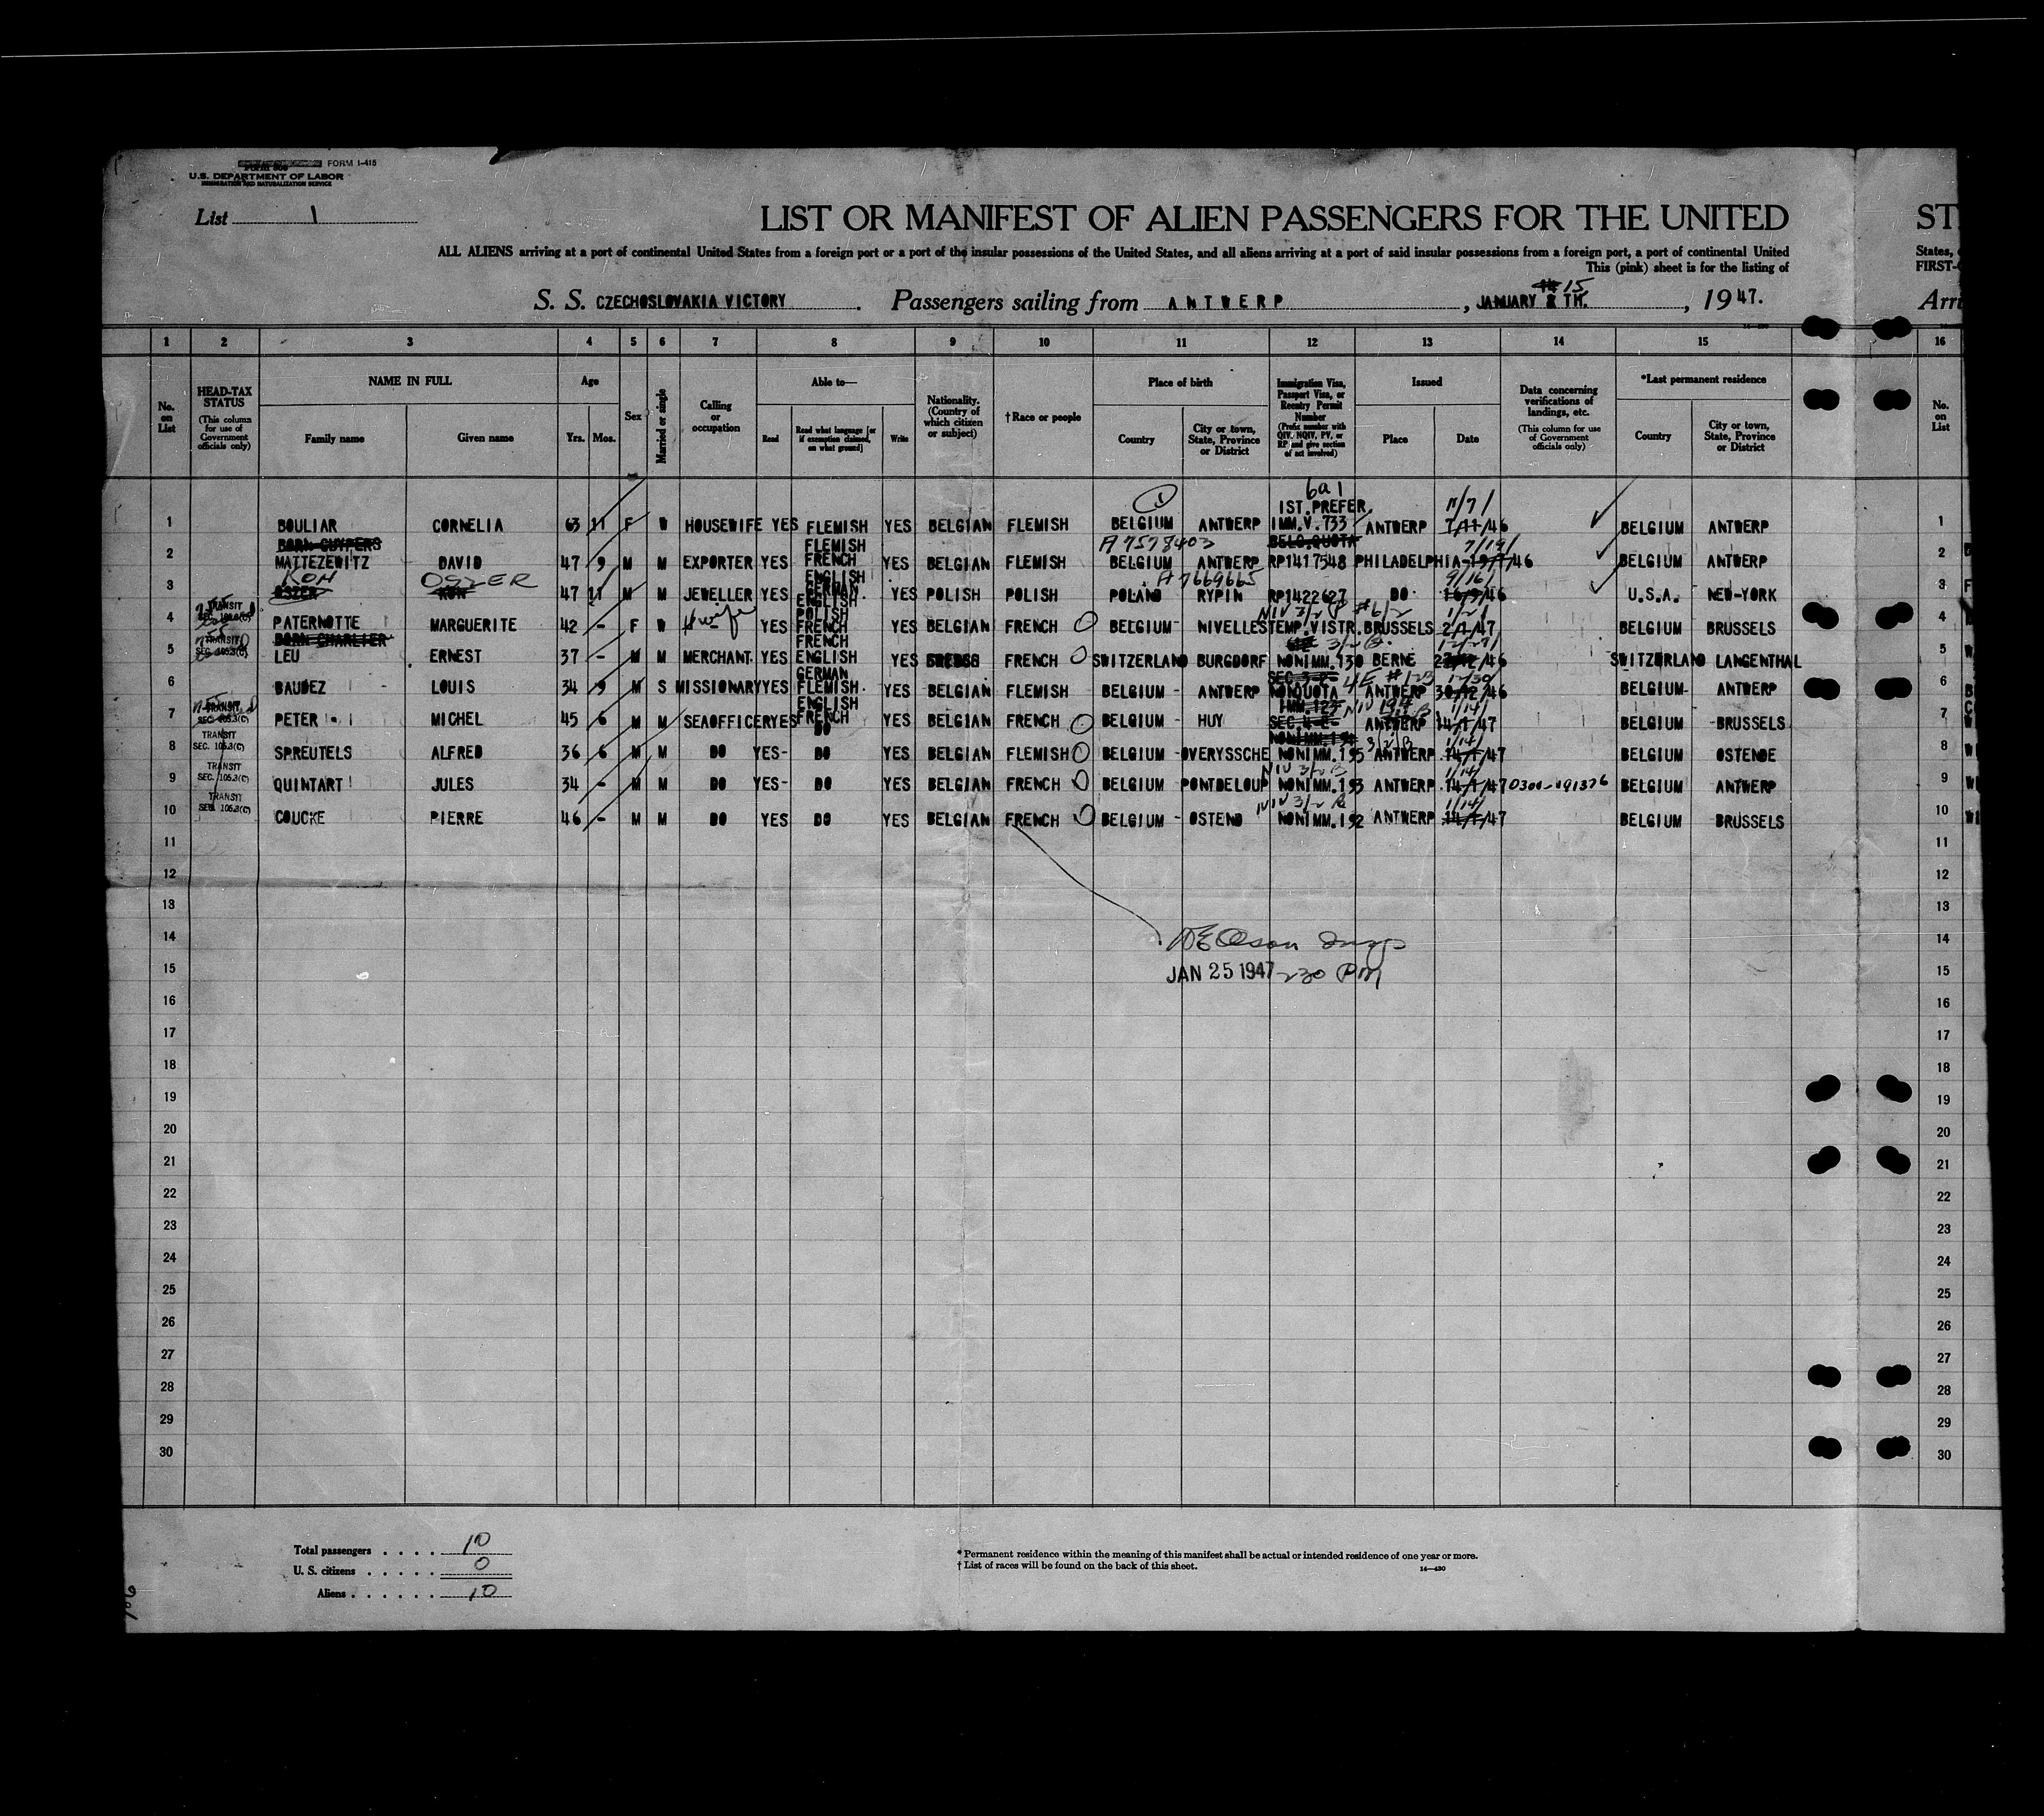 FORM I-415
U.S. DEPARTMENT OF LABOR
IMMIGRATION AND NATURALIZATION SERVICE
List 1
LIST OR MANIFEST OF ALIEN PASSENGERS FOR THE UNITED
ST
ALL ALIENS arriving at a port of continental United States from a foreign port or a port of the insular possessions of the United States, and all aliens arriving at a port of said insular possessions from a foreign port, a port of continental United
States,
This (pink) sheet is for the listing of
FIRST-
15
S. S. CZECHOSLOVAKIA VICTORY. Passengers sailing from ANTWERP, JANUARY 8 TH., 1947.
Arri
1 2 3 4 5 6 7 8 9 10 11 12 13 14 15 16
No. on List
HEAD-TAX STATUS
(This column for use of Government officials only)
NAME IN FULL
Family name
Given name
Age
Yrs.
Mos.
Sex
Married or single
Calling or occupation
Able to—
Read
Read what language [or if exemption claimed, on what ground]
Write
Nationality. (Country of which citizen or subject)
† Race or people
Place of birth
Country
City or town, State, Province or District
Immigration Visa, Passport Visa, or Reentry Permit Number
(Prefix number with QIV, NQIV, PV, or RP and give section of act involved)
Issued
Place
Date
Data concerning verifications of landings, etc.
(This column for use of Government officials only)
*Last permanent residence
Country
City or town, State, Province or District
No. on List
1 BOULIAR CORNELIA 63 11 F W HOUSEWIFE YES FLEMISH YES BELGIAN FLEMISH BELGIUM ANTWERP 6a1 1ST.PREFER. IMM.V.733 ANTWERP /46 BELGIUM ANTWERP 1
BORN CUYPERS FLEMISH A7578403 BELG.QUOTA
2 MATTEZEWITZ DAVID 47 9 M M EXPORTER YES FRENCH YES BELGIAN FLEMISH BELGIUM ANTWERP RP1417548 PHILADELPHIA /46 BELGIUM ANTWERP 2
KOH OSZER ENGLISH A7669665
3 OSZER KON 47 11 M M JEWELLER YES GERMAN YES POLISH POLISH POLAND RYPIN RP1422627 DO /46 U.S.A. NEW-YORK 3
ENGLISH
TRANSIT POLISH
4 PATERNOTTE MARGUERITE 42 - F W H wife YES FRENCH YES BELGIAN FRENCH BELGIUM- NIVELLES TEMP.VISTR. BRUSSELS /47 BELGIUM BRUSSELS 4
TRANSIT BORN CHARLIER FRENCH
5 LEU ERNEST 37 - M M MERCHANT. YES ENGLISH YES FRENCH SWITZERLAND BURGDORF NONIMM.130 BERNE /46 SWITZERLAND LANGENTHAL 5
GERMAN
6 BAUDEZ LOUIS 34 9 M S MISSIONARY YES FLEMISH. YES BELGIAN FLEMISH BELGIUM- ANTWERP NONQUOTA ANTWERP /46 BELGIUM- ANTWERP 6
TRANSIT SEC. 105.3(C) ENGLISH IMM.123
7 PETER MICHEL 45 6 M M SEAOFFICER YES FRENCH YES BELGIAN FRENCH BELGIUM - HUY ANTWERP 14/1/47 BELGIUM -BRUSSELS 7
TRANSIT SEC. 105.3(C) DO
8 SPREUTELS ALFRED 36 6 M M DO YES- DO YES BELGIAN FLEMISH BELGIUM -OVERYSSCHE NONIMM.195 ANTWERP 14/1/47 BELGIUM OSTENDE 8
TRANSIT SEC. 105.3(C) NIV 3/2 B 1/14/
9 QUINTART JULES 34 - M M DO YES- DO YES BELGIAN FRENCH BELGIUM PONTDELOUP NONIMM.193 ANTWERP 14/1/47 0300-191376 BELGIUM ANTWERP 9
TRANSIT SEC. 105.3(C) NIV 3/2 B 1/14/
10 COUCKE PIERRE 46 - M M DO YES DO YES BELGIAN FRENCH BELGIUM - OSTEND NONIMM.192 ANTWERP 14/1/47 BELGIUM -BRUSSELS 10
11 11
12 12
13 13
14 14
JAN 25 1947 230 PM
15 15
16 16
17 17
18 18
19 19
20 20
21 21
22 22
23 23
24 24
25 25
26 26
27 27
28 28
29 29
30 30
Total passengers . . . . 10
U. S. citizens . . . . . 0
Aliens . . . . . . 10
* Permanent residence within the meaning of this manifest shall be actual or intended residence of one year or more.
† List of races will be found on the back of this sheet.